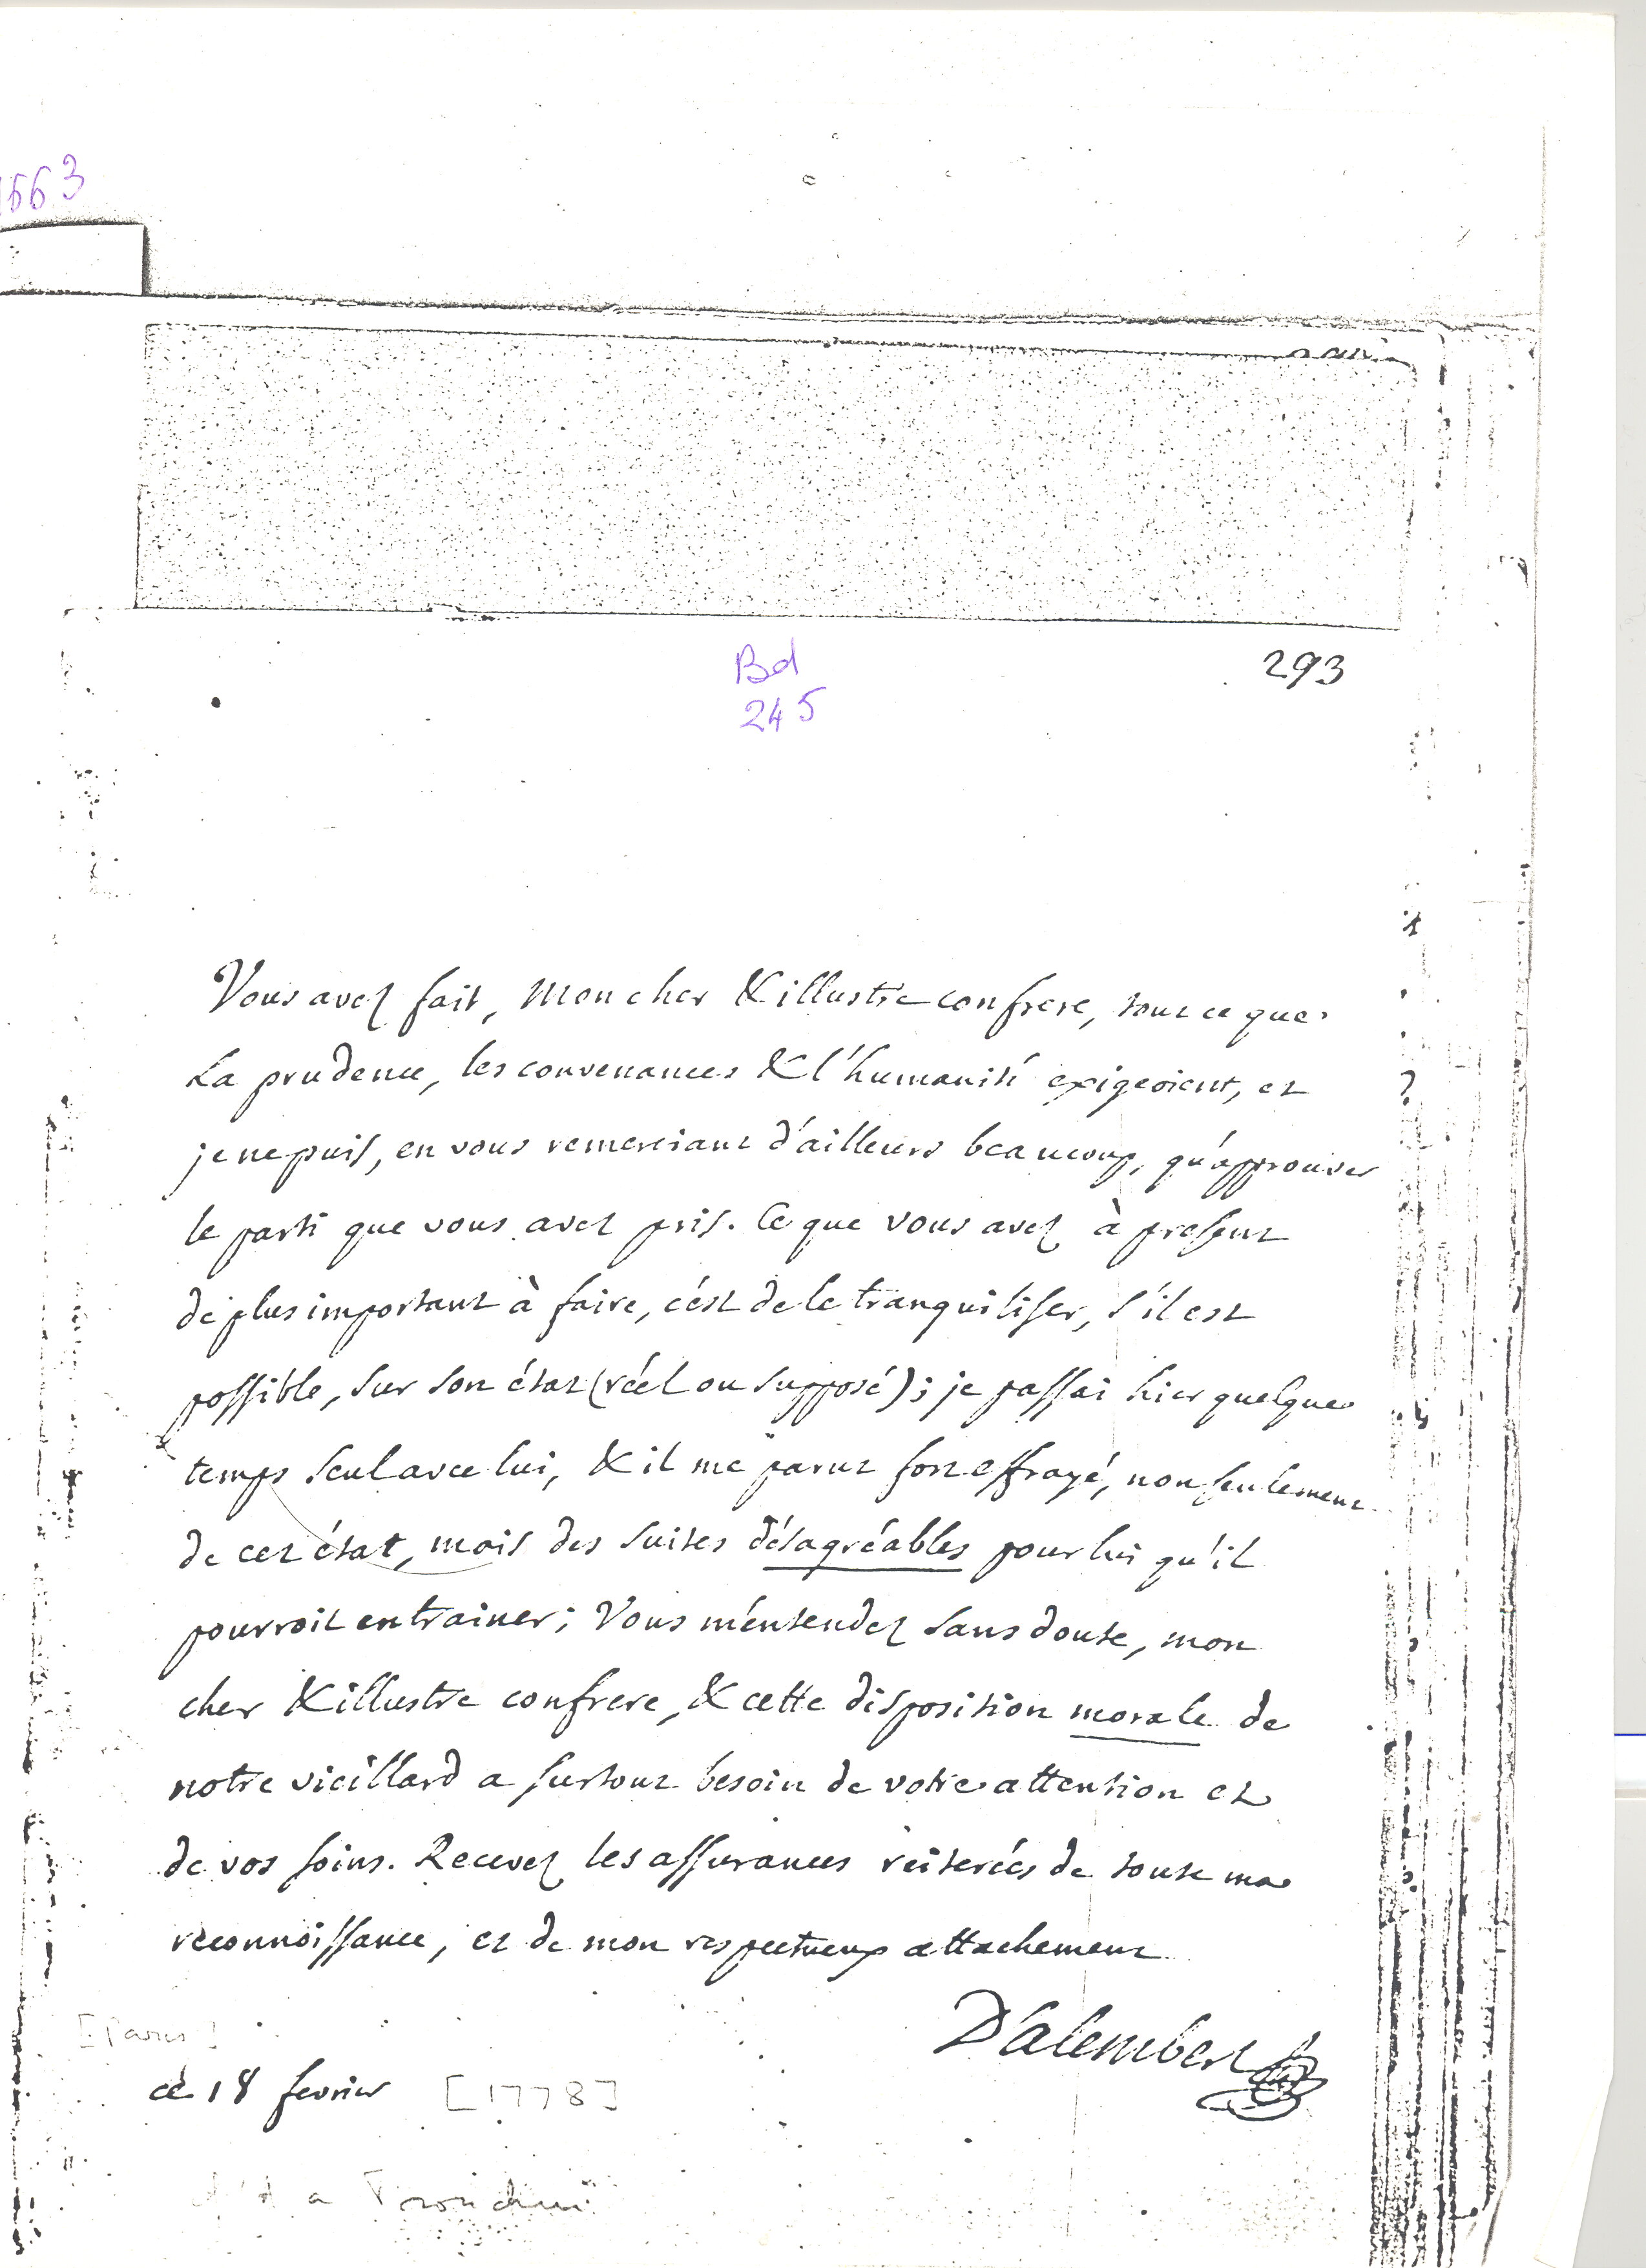 1663
Bd
245
293
Vous avez fait, mon cher & illustre confrere, tout ce que
la prudence, les convenances & l'humanité exigeoient, et
je ne puis, en vous remerciant d'ailleurs beaucoup, qu'approuver
le parti que vous avez pris. Ce que vous avez à present
de plus important à faire, c'est de le tranquiliser, s'il est
possible, sur son état (réel ou supposé); je passai hier quelque
temps seul avec lui, & il me parut fort effrayé, non seulement
de cet état, mais des suites désagréables pour lui qu'il
pourroit entrainer; Vous m'entendez sans doute, mon
cher & illustre confrere, & cette disposition morale de
notre vieillard a surtout besoin de votre attention et
de vos soins. Recevez les assurances reiterées de toute ma
reconnoissance, et de mon respectueux attachement
D'alembert
[Paris]
ce 18 fevrier [1778]
a Tronchin